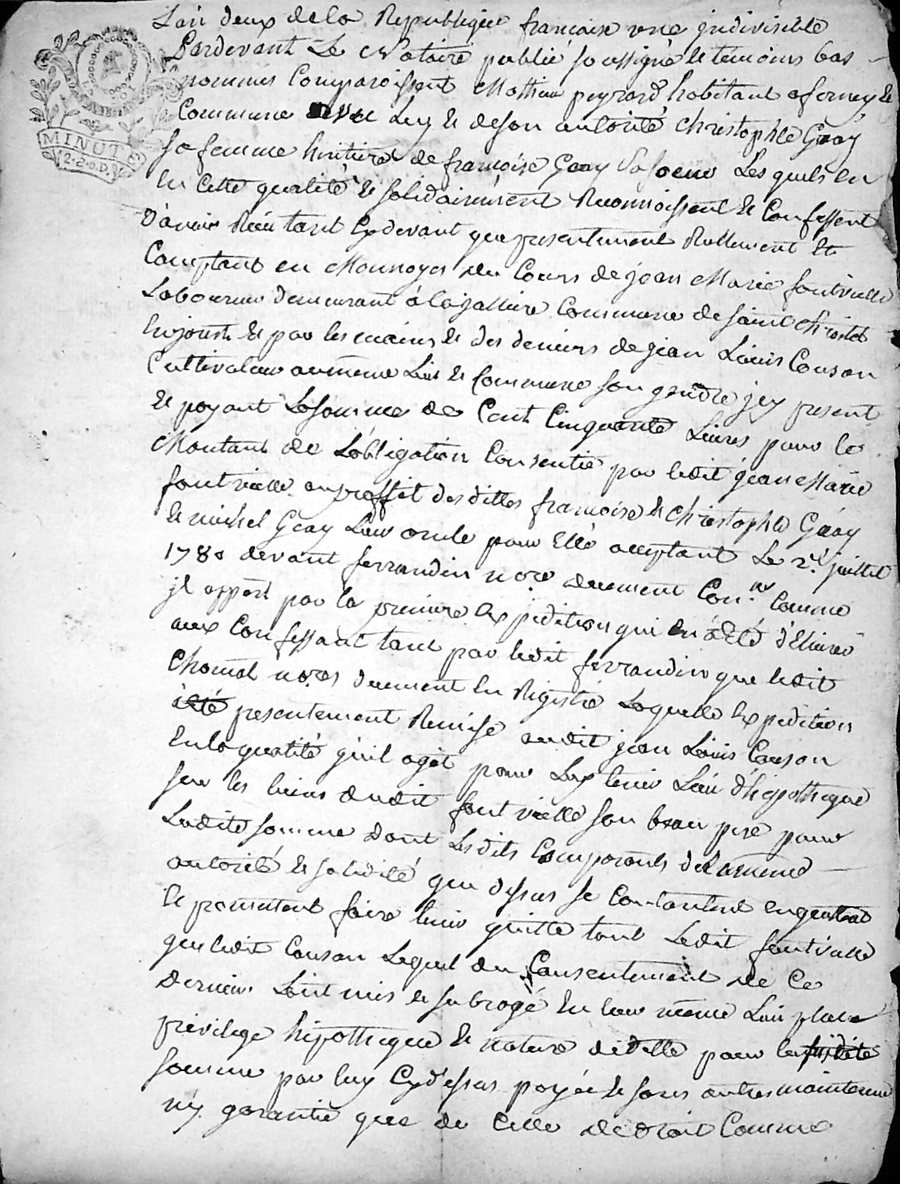 L'an deux de la Republique francaise une jndivisible
Pardevant Le Notaire publicq soussigné & temoins bas
nommés Comparoissent Mathieu peyrard habitant a ferney &
Commune Luy & de son autorité christophle Gaay
sa femme hritiere de francoise Gaay sa soeur Lesquels en
En Cette qualité & solidairement Reconnoissent & Confessent
D'avoir Reçu tant Cydevant que presentement Reellement Et
Comptant en Monnoyes du Cours de jean Marie fontvielle
Laboureur demeurant à Commune de saint christot
Enjarest & par les mains & des deniers de jean Louis Couson
Cultivateur au meme Lieu & Commune son gendre jcy present
& payant La somme de Cent Cinquante Livres pour le
Montant de L'obligation Consentie par ledit jean Marie
fontvielle au proffit desdittes francoise & christophle Gaay
& michel Gaay Leur oncle pour Elle acceptant Le 2e juillet
1780 devant ferrandin nore duement Con.lée Comme
jl appert par la premiere Expedition qui en a Eté d'Elivrée
aux Confessant tant par ledit ferrandin que ledit
Chomat nores duement En Registré Laquelle Expedition
à été presentement Remise audit jean Louis Couson
En la qualité qu'il agit pour Luy tenir Lieu d'hippotheque
sur les biens dudit fontvielle son beau pere pour
Ladite somme dont Lesdits Comparants de La meme
autorité & solidité que dessus se Contantent enquittent
& promettent faire tenir quitte tant Ledit fontvielle
que ledit Couson Lequel du Consentement de Ce
Dernier L'ont mis & subrogé En leur meme Lieu place
privilege hipotheque & nature d'idelle pour la susdite
somme par luy Cydessus payée & sans autres maintenue
ny garantie que de Celle de droit Comme
MINUTE
2. S. 6. D.